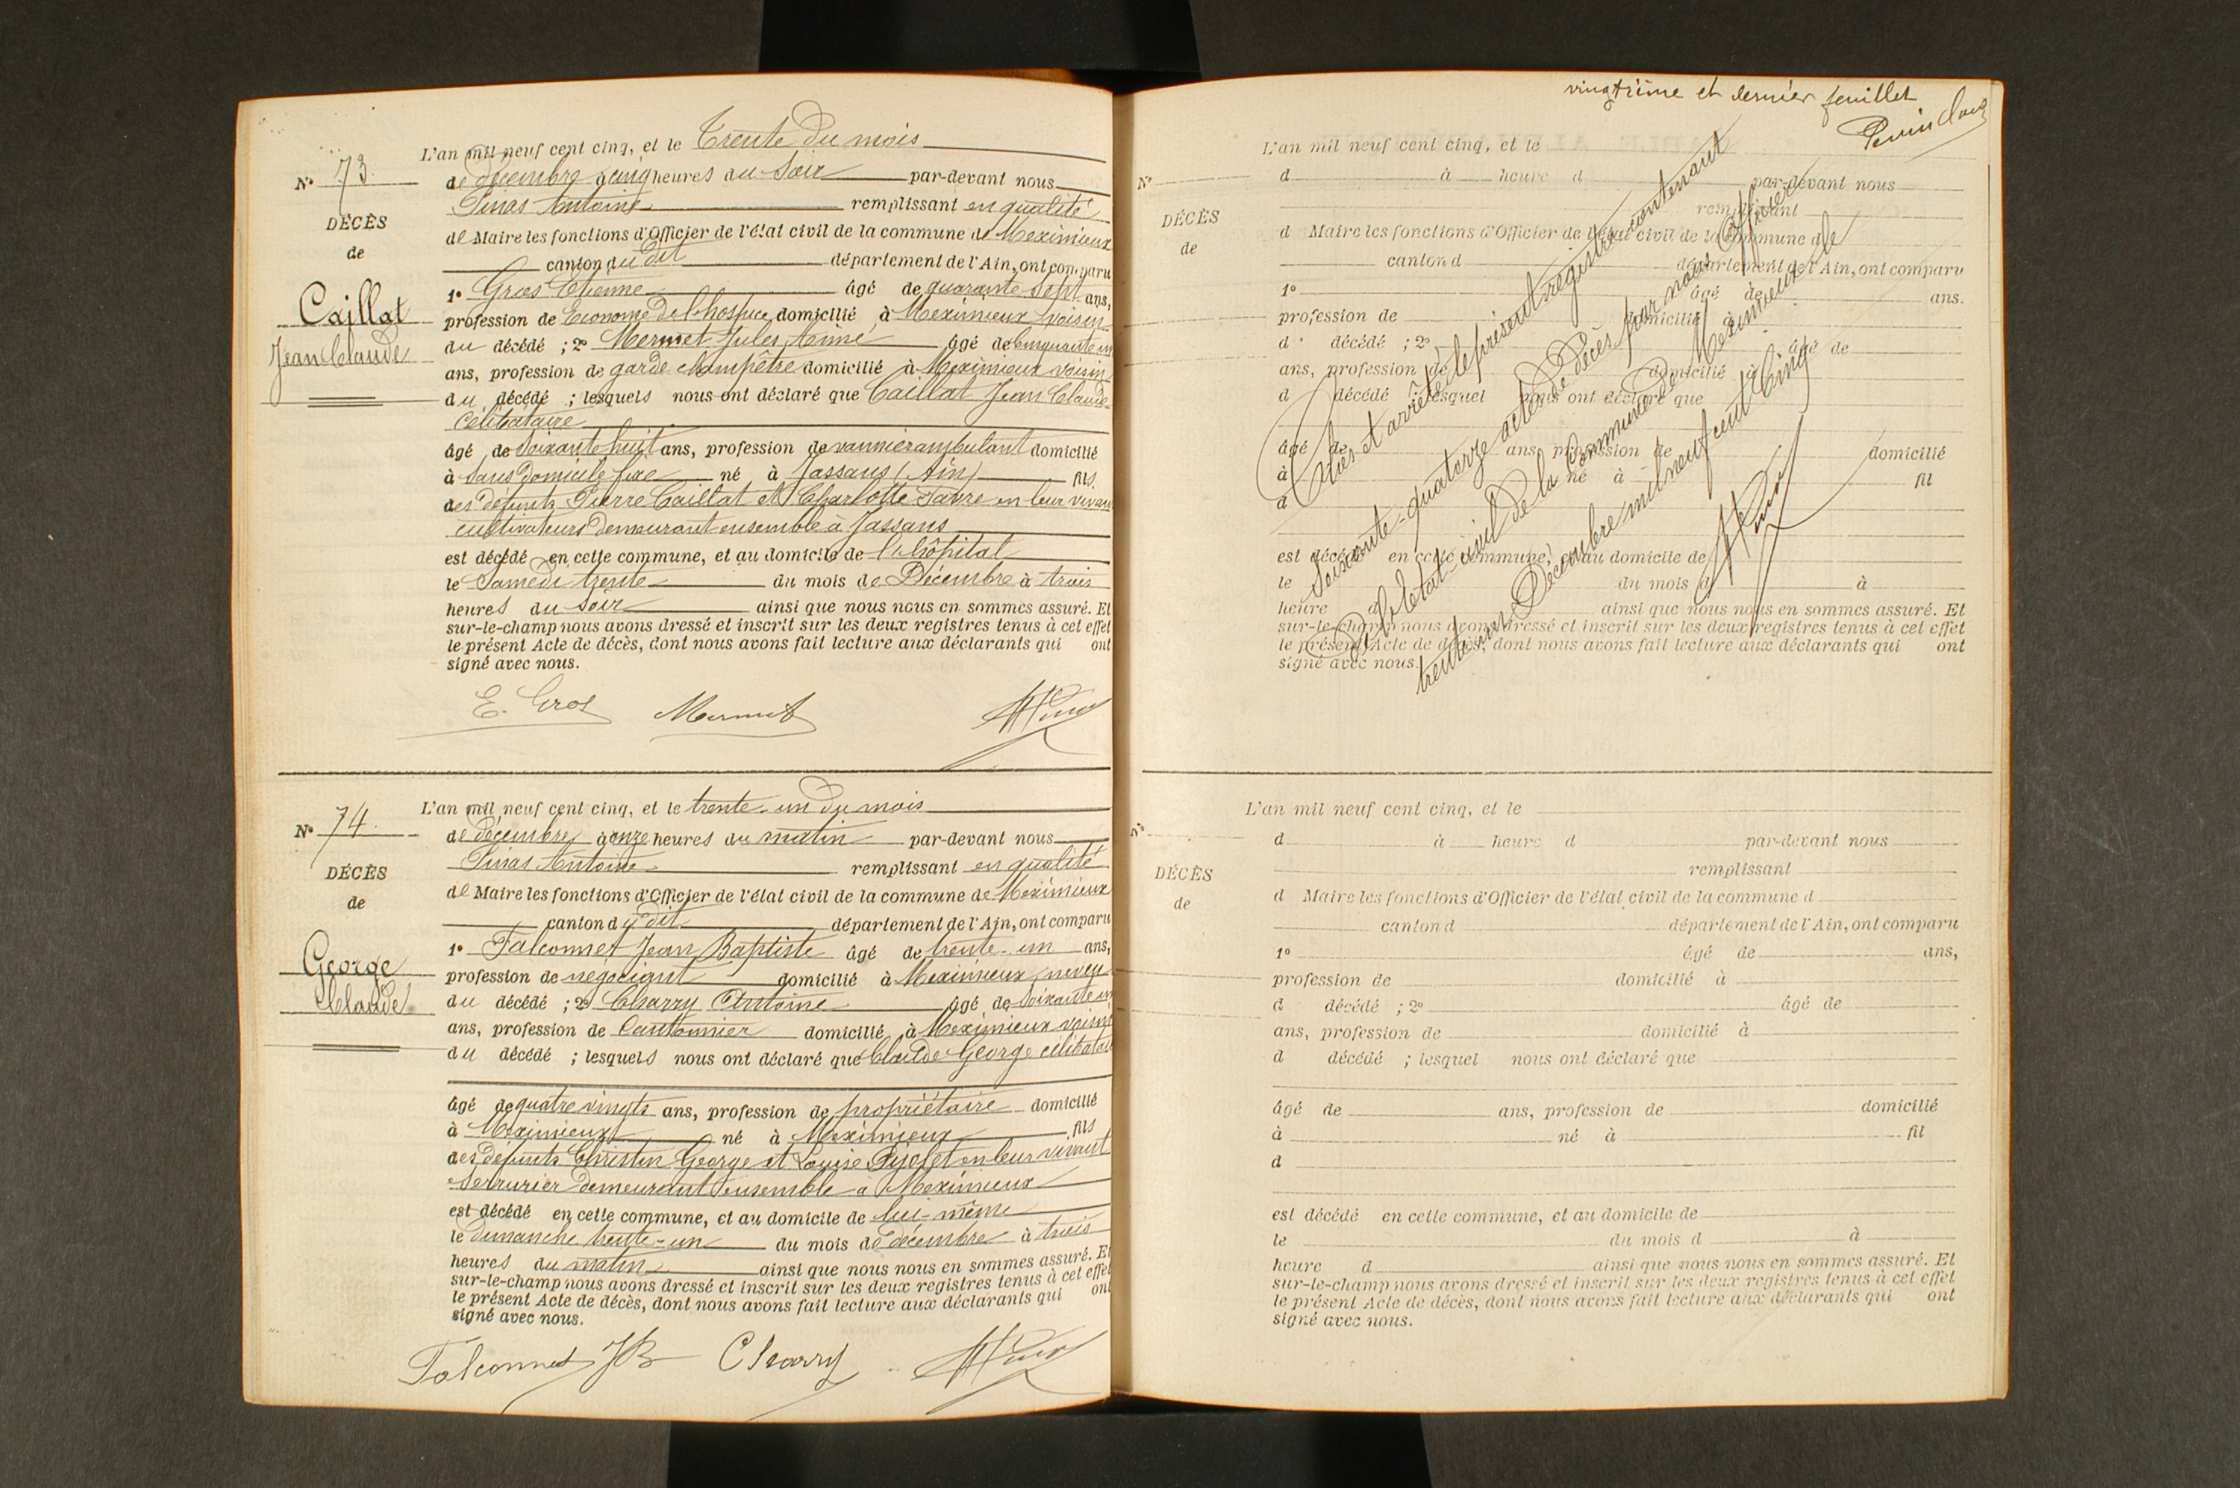 L'an mil neuf cent cinq, et le Trente du mois
N° 73 de décembre à cinq heures du soir par-devant nous
Pinas Antoine remplissant en qualité
DÉCÈS
de Maire les fonctions d'Officier de l'état civil de la commune de Meximieux
de
canton du dit département de l'Ain, ont comparu
1° Gros Etienne âgé de quarante-sept ans,
Caillat
profession de Econome de l'hospice domicilié à Meximieux voisin
Jean Claude
du décédé ; 2° Mermet Jules Aimé âgé de cinquante un
ans, profession de garde champêtre domicilié à Meximieux voisin
du décédé ; lesquels nous ont déclaré que Caillat Jean Claude
célibataire
âgé de soixante huit ans, profession de vannier ambulant domicilié
à sans domicile fixe né à Jassans (Ain) fils
des défunts Pierre Caillat et Charlotte en leur vivant
cultivateurs demeurant ensemble à Jassans
est décédé en cette commune, et au domicile de l'hôpital
le Samedi trente du mois de Décembre à trois
heures du soir ainsi que nous nous en sommes assuré. Et
sur-le-champ nous avons dressé et inscrit sur les deux registres tenus à cet effet
le présent Acte de décès, dont nous avons fait lecture aux déclarants qui ont
signé avec nous.
E. Gros Mermet
L'an mil neuf cent cinq, et le trente-un du mois
N° 74 de décembre à onze heures du matin par-devant nous
Pinas Antoine remplissant en qualité
DÉCÈS
de Maire les fonctions d'Officier de l'état civil de la commune de Meximieux
de
canton du dit département de l'Ain, ont comparu
1° Falconnet Jean Baptiste âgé de trente-un ans,
George
profession de négociant domicilié à Meximieux neveu
Claude
du décédé ; 2° Charry Antoine âgé de soixante un
ans, profession de Cantonnier domicilié à Meximieux voisin
du décédé ; lesquels nous ont déclaré que Claude George célibataire
âgé de quatre vingts ans, profession de propriétaire domicilié
à Meximieux né à Meximieux fils
des défunts Christin George et Louise en leur vivant
serrurier demeurant ensemble à Meximieux
est décédé en cette commune, et au domicile de lui-même
le dimanche trente-un du mois de décembre à trois
heures du matin ainsi que nous nous en sommes assuré. Et
sur-le-champ nous avons dressé et inscrit sur les deux registres tenus à cet effet
le présent Acte de décès, dont nous avons fait lecture aux déclarants qui ont
signé avec nous.
Falconnet JB Charry
vingtième et dernier feuillet
L'an mil neuf cent cinq, et le
N° d à heure d par-devant nous
remplissant
DÉCÈS
d Maire les fonctions d'Officier de l'état civil de la commune d
de
canton d département de l'Ain, ont comparu
1° âgé de ans.
profession de domicilié à
d décédé ; 2° âgé de
ans, profession de domicilié à
d décédé ; lesquel nous ont déclaré que
âgé de ans, profession de domicilié
à né à fil
d
est décédé en cette commune, et au domicile de
le du mois d à
heure d ainsi que nous nous en sommes assuré. Et
sur-le-champ nous avons dressé et inscrit sur les deux registres tenus à cet effet
le présent Acte de décès, dont nous avons fait lecture aux déclarants qui ont
signé avec nous.
Clos et arrêté le présent registre contenant
soixante-quatorze actes de décès par nous Officier
de l'état-civil de la commune de Meximieux le
trente un Décembre mil neuf cent Cinq
L'an mil neuf cent cinq, et le
N° d à heure d par-devant nous
remplissant
DÉCÈS
d Maire les fonctions d'Officier de l'état civil de la commune d
de
canton d département de l'Ain, ont comparu
1° âgé de ans,
profession de domicilié à
d décédé ; 2° âgé de
ans, profession de domicilié à
d décédé ; lesquel nous ont déclaré que
âgé de ans, profession de domicilié
à né à fil
d
est décédé en cette commune, et au domicile de
le du mois d à
heure d ainsi que nous nous en sommes assuré. Et
sur-le-champ nous avons dressé et inscrit sur les deux registres tenus à cet effet
le présent Acte de décès, dont nous avons fait lecture aux déclarants qui ont
signé avec nous.